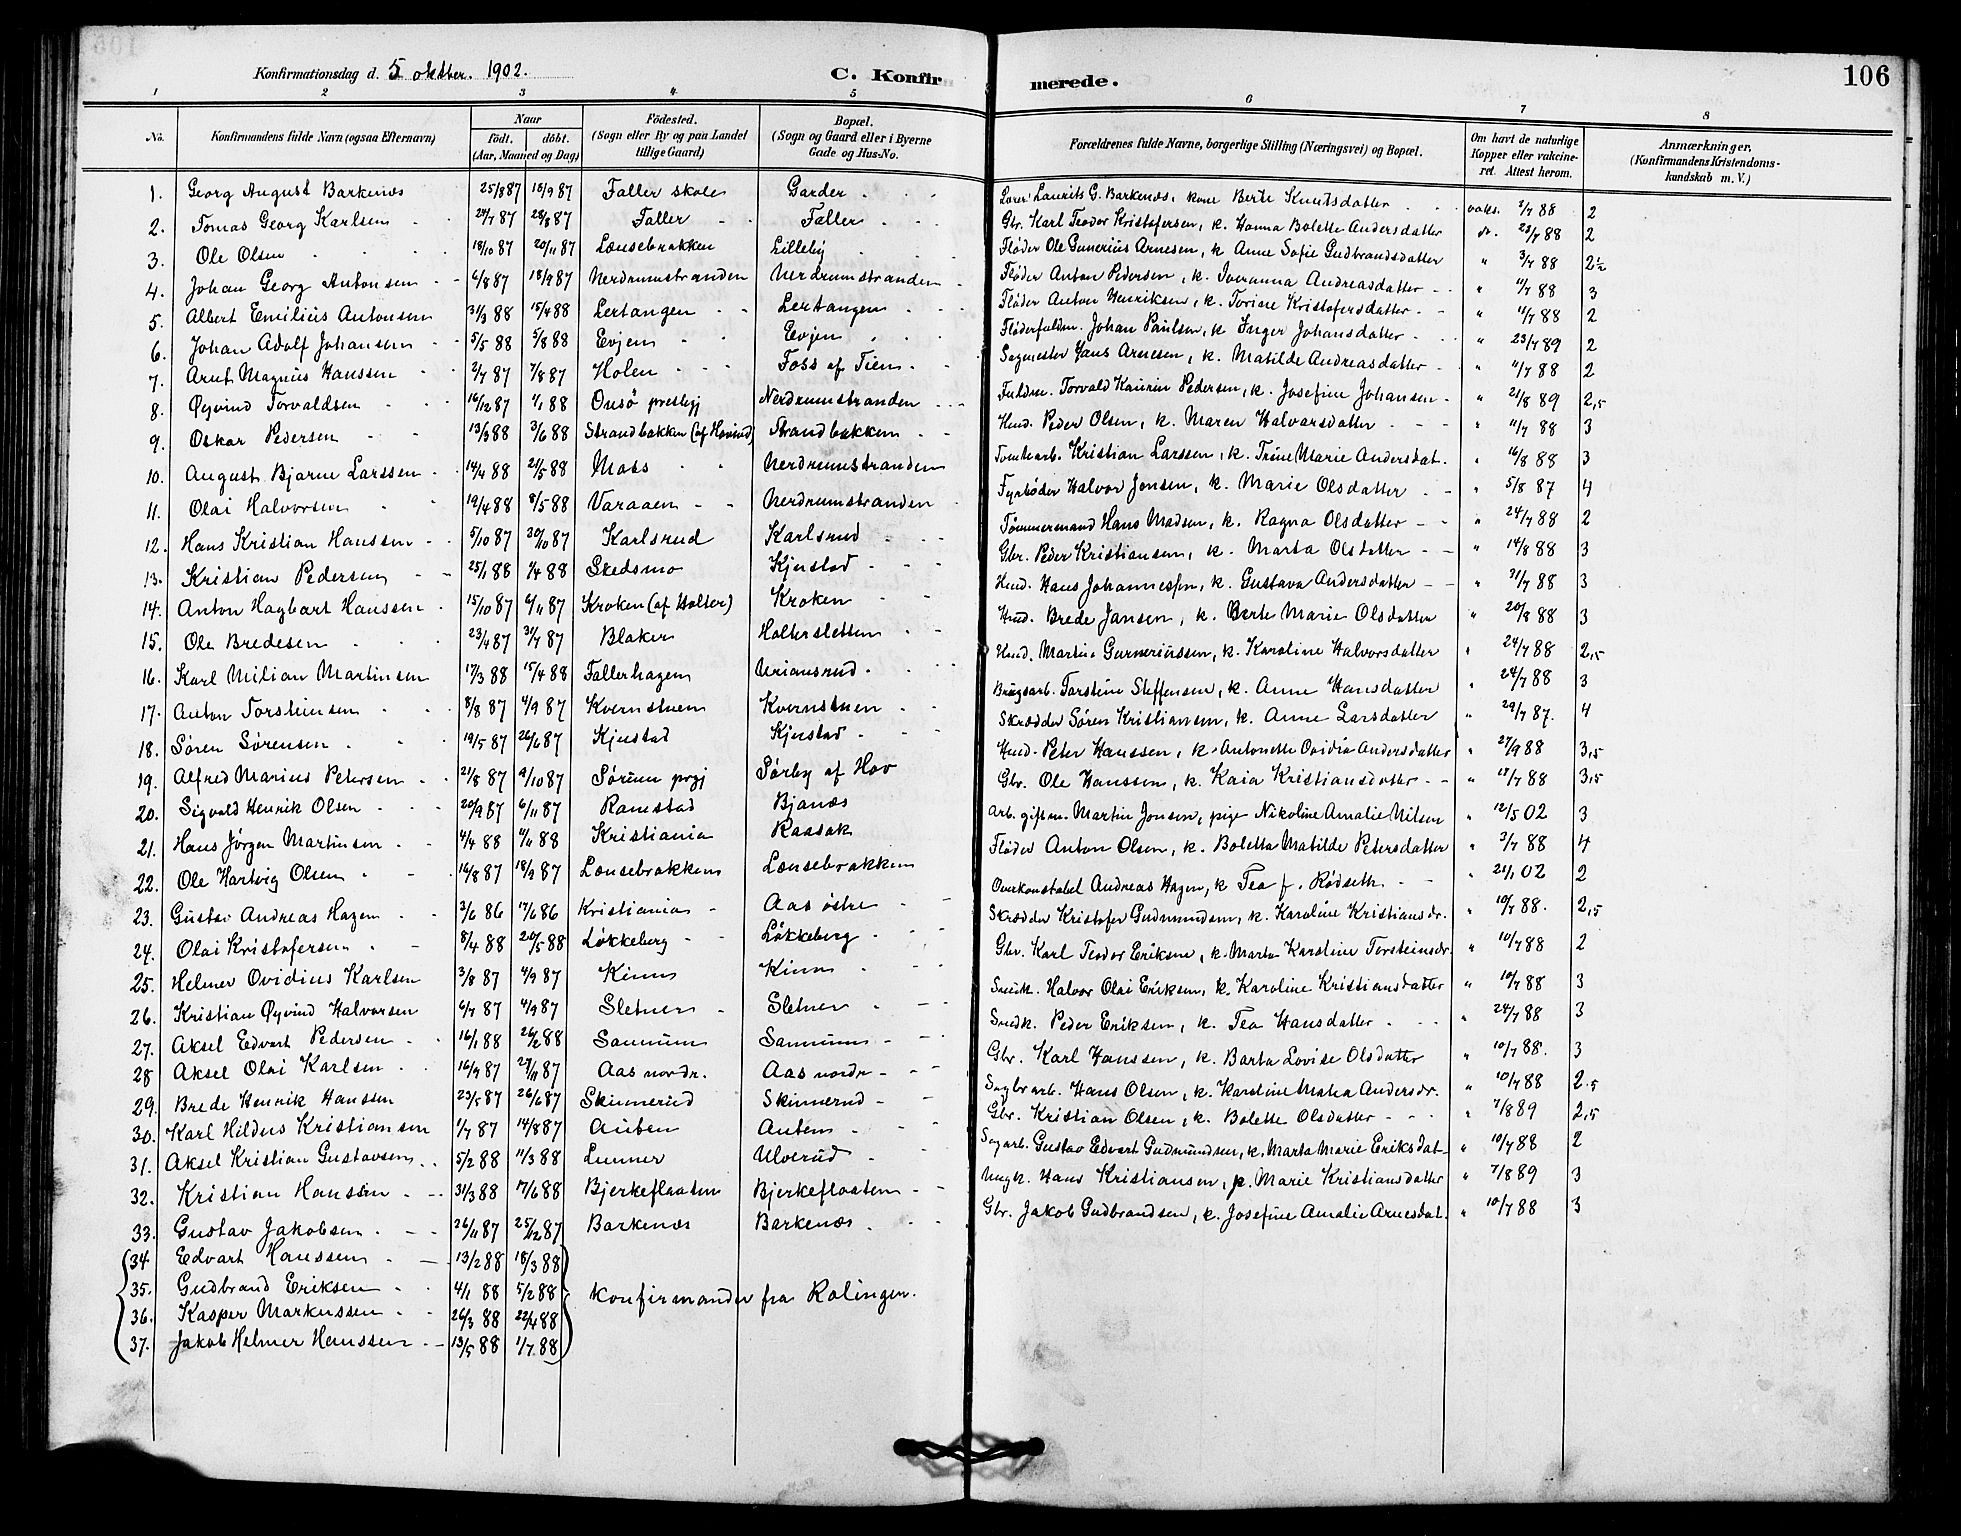 Konfirmationsdag d. 5 oktber. 1902. C. Konfirmerede. 106
1 2 3 4 5 6 7 8
No. Konfirmandens fulde Navn (ogsaa Efternavn) Naar födt. döbt. (Aar, Maaned og Dag) Födested. (Sogn eller By og paa Landet tillige Gaard) Bopæl. (Sogn og Gaard eller i Byerne Gade og Hus-No. Forældrenes fulde Navne, borgerlige Stilling (Næringsvei) og Bopæl. Om havt de naturlige Kopper eller vakcineret. Attest herom. Anmærkninger. (Konfirmandens Kristendomskundskab m. V.)
1. Georg August Barkenæs 25/8 87 18/9 87 Faller skole Garder Lærer Laurits G. Barkenæs, kone Berte Knutsdatter vaks. 88 2
2. Tomas Georg Karlsen 87 28/8 87 Faller Faller Gbr. Karl Teodor Kristofersen, k. Hanna Bolette Andersdatter do. 23/7 88 2
3. Ole Olsen 18/10 87 20/11 87 Lænsebrakken Lilleby Fløder Ole Gunerius Arnesen, k. Anne Sofie Gudbrandsdatter " 3/7 88 2½
4. Johan Georg Antonsen 6/8 87 18/9 87 Nerdrumstranden Nerdrumstranden Fløder Anton Pedersen, k. Andreasdatter " 11/7 88 3
5. Albert Emilius Antonsen 31/3 88 15/4 88 Lertangen Lertangen Fløder Anton Henriksen, k. Torine Kristofersdatter " 11/7 88 2
6. Johan Adolf Johansen 5/5 88 5/8 88 Evjen Evjen Fløderfuldm. Johan Paulsen, k Inger Johansdatter " 23/7 89 2
7. Arnt Magnus Hanssen 2/7 87 7/8 87 Holen Foss af Tien Sagmester Hans Arnesen, k. Matilde Andreasdatter " 11/7 88 2
8. Øyvind Torvaldsen 16/12 87 1/1 88 Onsø prestegj Nerdrumstranden Fuldm. Torvald Kaurin Pedersen, k. Josefine Johansen " 21/8 89 2,5
9. Oskar Pedersen 13/3 88 3/6 88 Strandbakken (af Hovind) Strandbakken Husd. Peder Olsen, k. Maren Halvorsdatter " 11/7 88 3
10. August Bjarne Larssen 14/4 88 21/5 88 Moss Nerdrumstranden Tomtearb. Kristian Larssen, k. Trine Marie Andersdat. " 16/8 88 3
11. Olai Halvorsen 19/4 88 8/5 88 Varaaen Nerdrumstranden Fyrbøder Halvor Jensen, k. Marie Olsdatter " 5/8 87 4
12. Hans Kristian Hanssen 5/10 87 30/10 87 Karlsrud Karlsrud Tømmermand Hans Madsen, k. Ragna Olsdatter " 24/7 88 2
13. Kristian Pedersen 25/1 88 2/4 88 Skedsmo Kjustad Gbr. Peder Kristiansen, k. Marta Olsdatter " 14/8 88 3
14. Anton Hagbart Hanssen 15/10 87 6/11 87 Kroken (af Holter) Kroken Husd. Hans Johannessen, k. Gustava Andersdatter " 31/7 88 3
15. Ole Bredesen 23/4 87 31/7 87 Blaker Holtersletten Husd. Brede Jansen, k. Berte Marie Olsdatter " 20/8 88 3
16. Karl Milian Martinsen 17/3 88 15/4 88 Fallerhagen Uriansrud Husd. Martin Gunneriussen, k. Karoline Halvorsdatter " 24/7 88 2,5
17. Anton Torsteinsen 8/8 87 4/9 87 Kvernstuen Kvernstuen Brugsarb. Torstein Steffensen, k. Anne Hansdatter " 24/7 88 3
18. Søren Sørensen 19/5 87 26/6 87 Kjustad Kjustad Skrædder Søren Kristiansen, k. Anne Larsdatter " 29/7 87. 4
19. Alfred Marius Petersen 21/8 87 9/10 87 Sørum prgj Sørby af Hov Husd. Peter Hanssen, k. Antonette Ovidia Andersdatter " 27/9 88 3,5
20. Sigvald Henrik Olsen 20/9 87 6/11 87 Ramstad Bjanæs Gbr. Ole Hanssen, k. Kaia Kristiansdatter " 88 3,5
21. Hans Jørgen Martinsen 4/4 88 88 Kristiania Raasok arb. gift m. Martin Jonsen, pige Nikoline Amalie Nilsen " 12/5 02 3
22. Ole Hartvig Olsen 16/8 87 18/9 87 Lænsebrakken Lænsebrakken Fløder Anton Olsen, k. Boletta Matilde Petersdatter " 3/7 88 4
23. Gustav Andreas Hagen 3/6 86 17/6 86 Kristiania Aas østre Overkonstabel Andreas Hagen, k Tea f. Rødseth " 21/1 02 2
24. Olai Kristofersen 8/4 88 20/5 88 Løkkeberg Løkkeberg Skrædder Kristofer Gudmundsen, k. Karoline Kristiansdr. " 10/7 88. 2,5
25. Helmer Ovidius Karlsen 3/8 87 4/9 87 Kinn Kinn Gbr. Karl Teodor Eriksen, k. Marta Karstine Torsteinsdr. " 10/7 88 2
26. Kristian Øyvind Halvorsen 6/7 87 4/9 87 Sletner Sletner Snedk. Halvor Olai Eriksen, k. Karoline Kristiansdatter " 10/7 88 3
27. Aksel Edvart Pedersen 16/1 88 26/2 88 Sannum Sannum Snedk. Peder Eriksen, k. Tea Hansdatter " 24/7 88 3
28 Aksel Olai Karlsen 16/9 87 27/11 87 Aas nordr. Aas nordr Gbr. Karl Hanssen, k. Barta Lovise Olsdatter " 10/7 88. 3
29. Brede Henrik Hanssen 23/5 87 26/6 87 Skinnerud Skinnerud Sagbrarb. Hans Olsen, k. Karoline Matea Andersdr. " 10/7 88 2.5
30. Karl Hildus Kristiansen 1/7 87 14/8 87 Auten Auten Gbr. Kristian Olsen, k. Bolette Olsdatter " 7/8 89 2,5
31. Aksel Kristian Gustavsen 5/2 88 11/3 88 Lunner Ulverud Sagarb. Gustav Edvart Gudmundsen, k. Marta Marie Eriksdat " 10/7 88 2
32. Kristian Hanssen 31/3 88 17/6 88 Bjerkeflaaten Bjerkeflaaten Ungk. Hans Kristiansen, p. Marie Kristiansdatter " 7/8 89 3
33. Gustav Jakobsen 26/11 87 25/12 87 Barkenæs Barkenæs Gbr. Jakob Gudbrandsen, k. Josefine Amalie Arnesdat. " 10/7 88 3
34 Edvart Hanssen 13/2 88 18/3 88
35. Gudbrand Eriksen 4/1 88 5/2 88 Konfirmander fra Rælingen.
36. Kasper Markussen 26/3 88 22/4 88
37. Jakob Helmer Hanssen 13/5 88 1/7 88